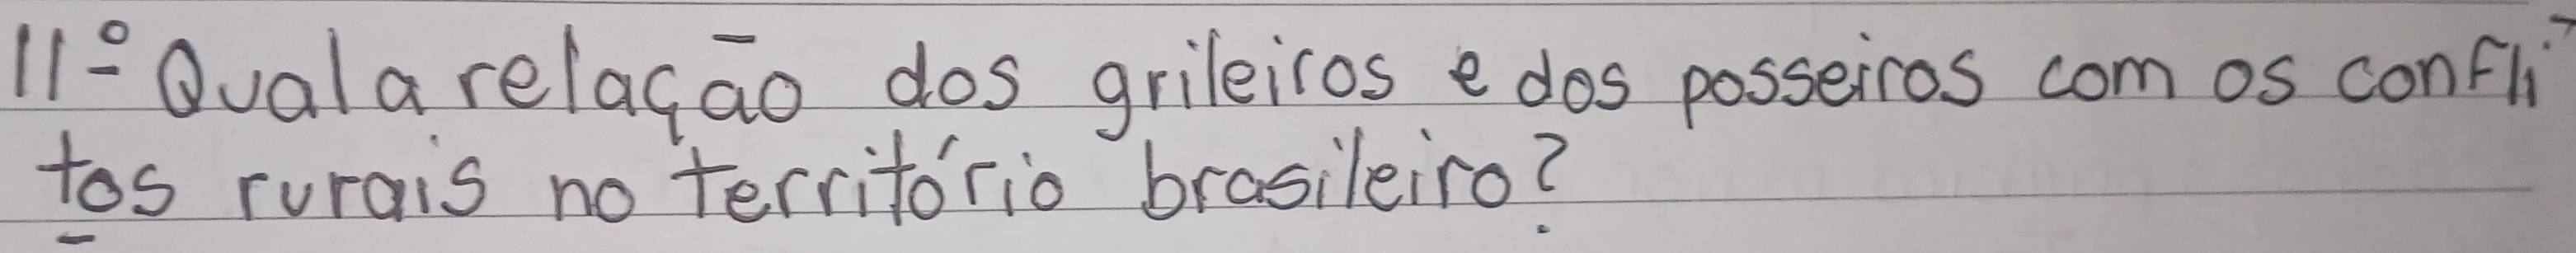 11º Qual a relação dos grileiros e dos posseiros com os confli
tos rurais no território brasileiro?